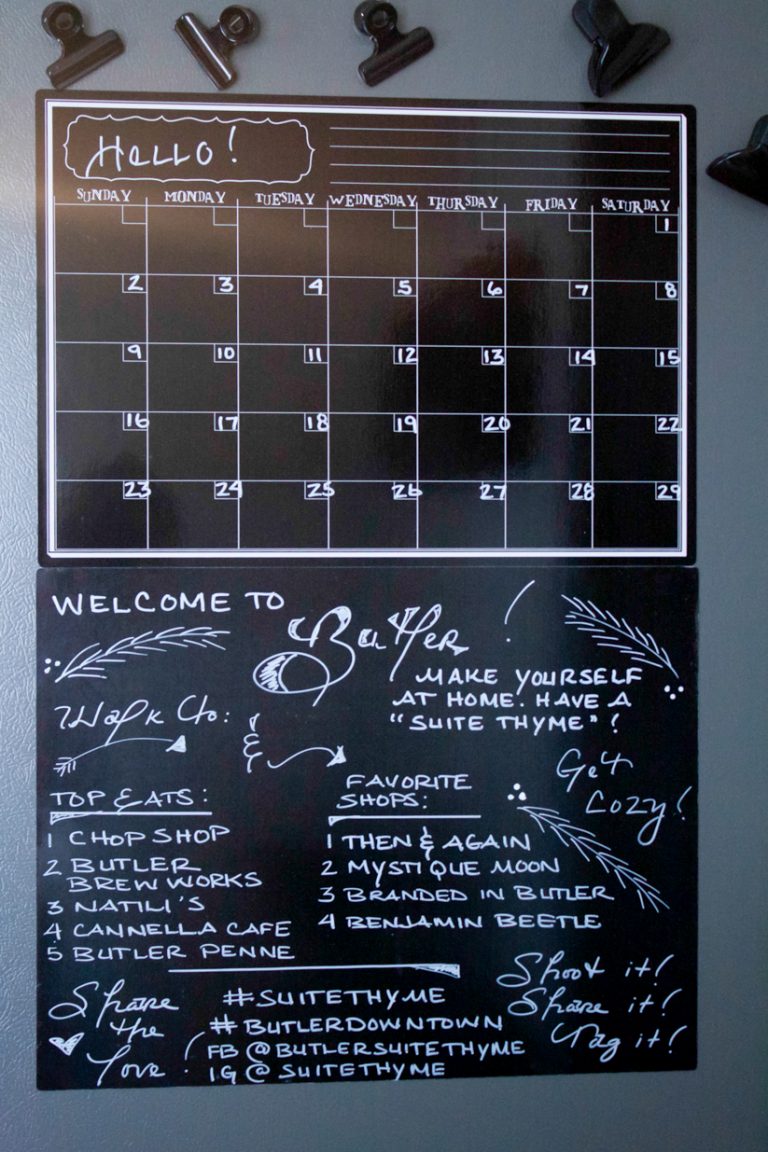 HELLO!
SUNDAY MONDAY TUESDAY WEDNESDAY THURSDAY FRIDAY SATURDAY
1
2 3 4 5 6 7 8
9 10 11 12 13 14 15
16 17 18 19 20 21 22
23 24 25 26 27 28 29
WELCOME TO
Butler!
MAKE YOURSELF
AT HOME. HAVE A
"SUITE THYME"!
Walk to:
&
Get
Cozy!
TOP EATS:
1 CHOP SHOP
2 BUTLER
BREW WORKS
3 NATILI'S
4 CANNELLA CAFE
5 BUTLER PENNE
FAVORITE
SHOPS:
1 THEN & AGAIN
2 MYSTIQUE MOON
3 BRANDED IN BUTLER
4 BENJAMIN BEETLE
Share
the
love!
#SUITETHYME
#BUTLERDOWNTOWN
FB @BUTLERSUITETHYME
IG @SUITETHYME
Shoot it!
Share it!
Tag it!